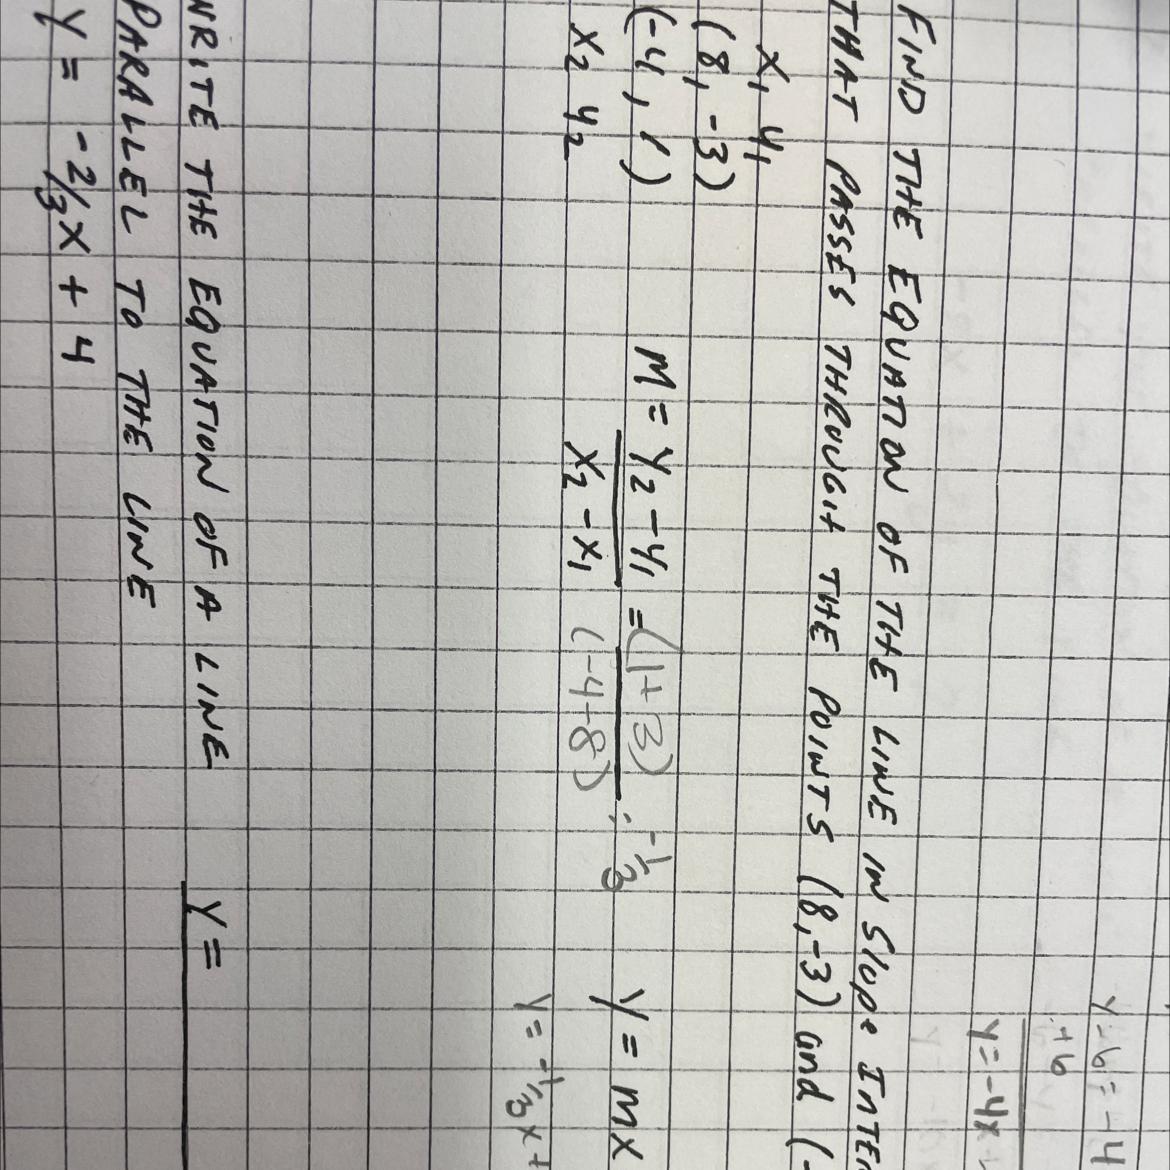 y-6=-4
+6
y=-4x
FIND THE EQUATION OF THE LINE IN Slope INTER
THAT PASSES THROUGH THE POINTS (8,-3) and (-
x₁ y₁
(8,-3)
(-4,1)
x₂ y₂
M = y₂-y₁ = (1+3) : -1/3
x₂-x₁ (-4-8)
y = mx
y = -1/3x+
WRITE THE EQUATION OF A LINE y =
PARALLEL TO THE LINE
y = -2/3x + 4